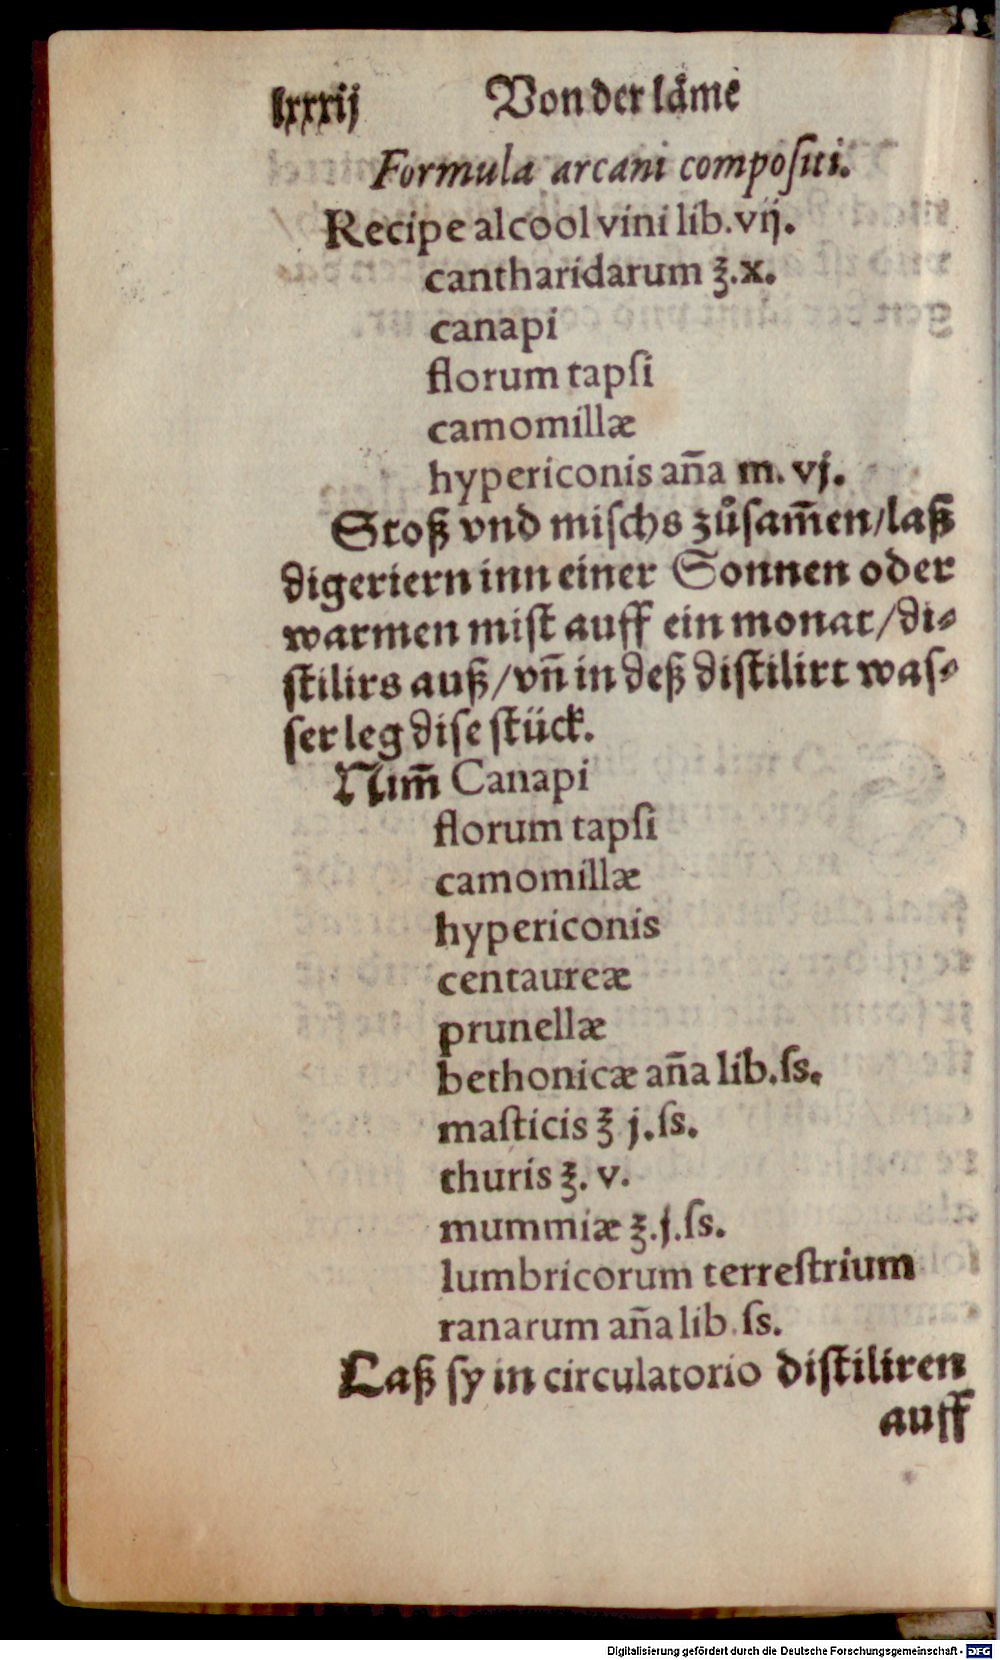 lxxxij Von der läme
Formula arcani compoſiti.
Recipe alcool vini lib. vij.
cantharidarum ℥. x.
canapi
florum tapſi
camomillæ
hypericonis an̄a m. vj.
Stoß vnd miſchs zůſam̄en/laß
digeriern inn einer Sonnen oder
warmen miſt auff ein monat/di⸗
ſtilirs auß/vn̄ in deß diſtilirt waſ⸗
ſer leg diſe ſtück.
Nim̄ Canapi
florum tapſi
camomillæ
hypericonis
centaureæ
prunellæ
bethonicæ an̄a lib. ſs.
maſticis ℥ j. ſs.
thuris ℥. v.
mummiæ ℥. j. ſs.
lumbricorum terreſtrium
ranarum an̄a lib. ſs.
Laß ſy in circulatorio diſtiliren
auff
Digitalisierung gefördert durch die Deutsche Forschungsgemeinschaft - DFG